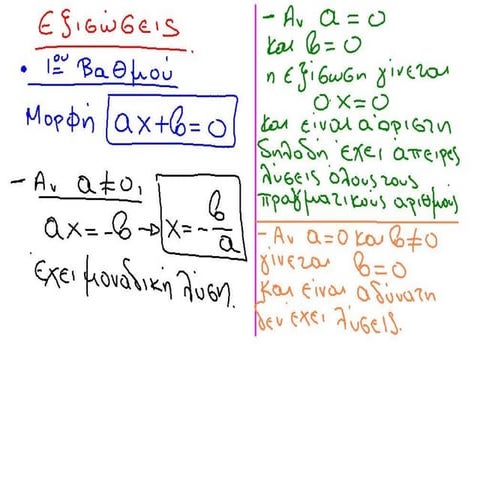 Εξισώσεις
• 1ου Βαθμού
Μορφή ax+b=0
- Αν a≠0,
ax=-b → x=-b/a
έχει μοναδική λύση.
- Αν a=0
και b=0
η εξίσωση γίνεται
0·x=0
και είναι αόριστη
δηλαδή έχει άπειρες
λύσεις όλους τους
πραγματικούς αριθμούς
- Αν a=0 και b≠0
γίνεται b=0
και είναι αδύνατη
δεν έχει λύσεις.